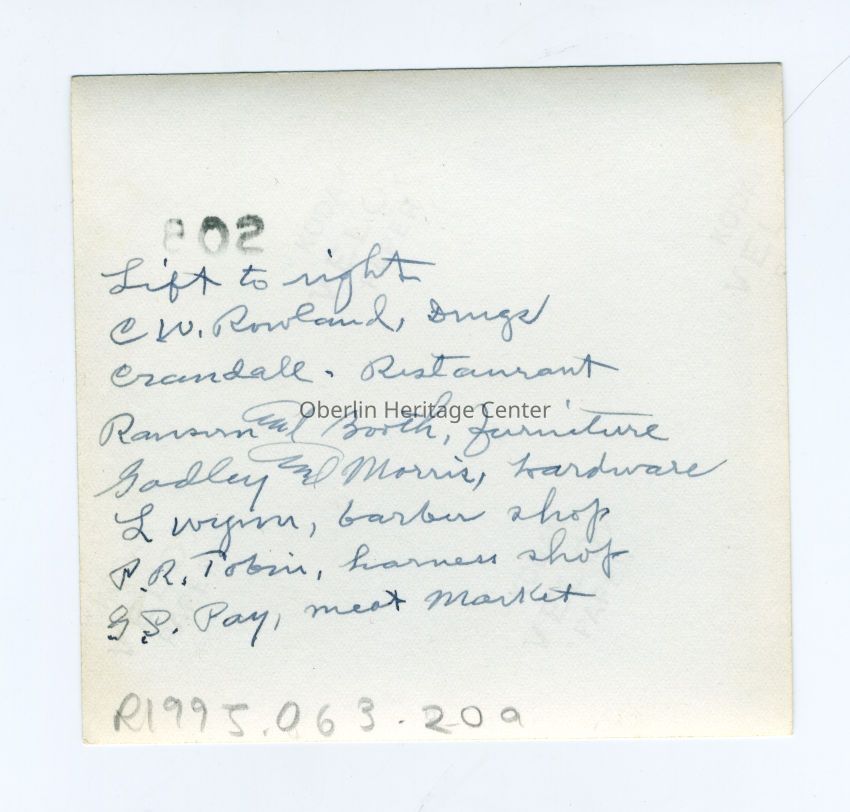 802
Left to right
C W. Rowland, Drugs
Crandall. Restaurant
Ransom and Booth, furniture
Oberlin Heritage Center
Godley and Morris, hardware
L Wynn, barber shop
P.R. Tobin, harness shop
G S. Pay, meat Market
R1995.063.209